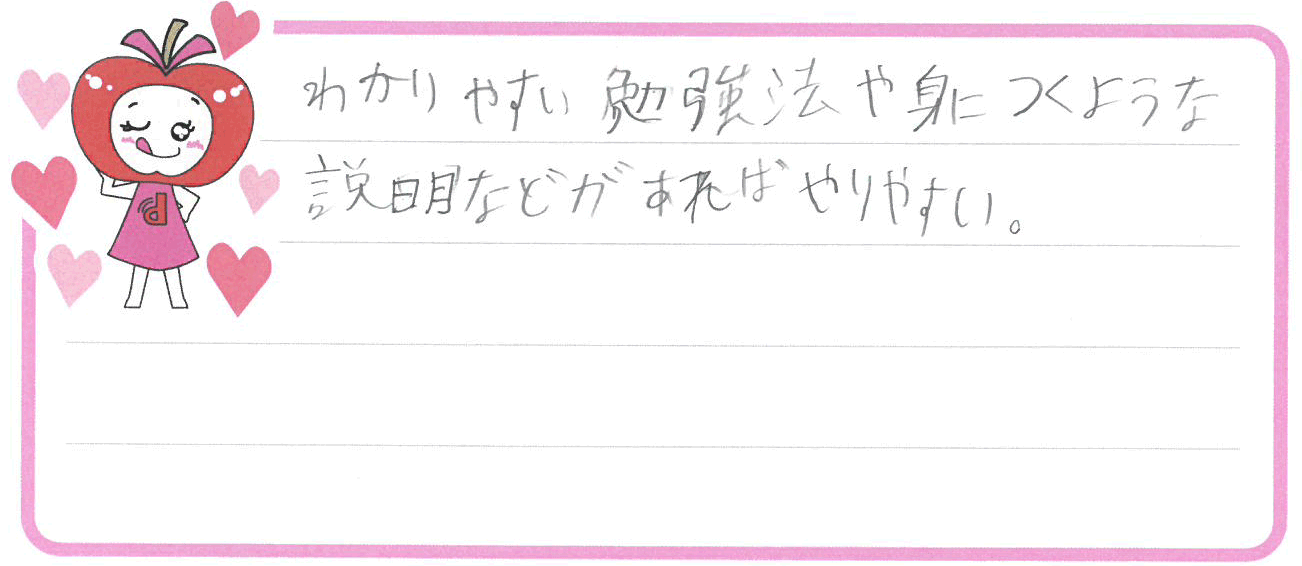 わかりやすい勉強法や身につくような
説明などがあればやりやすい。